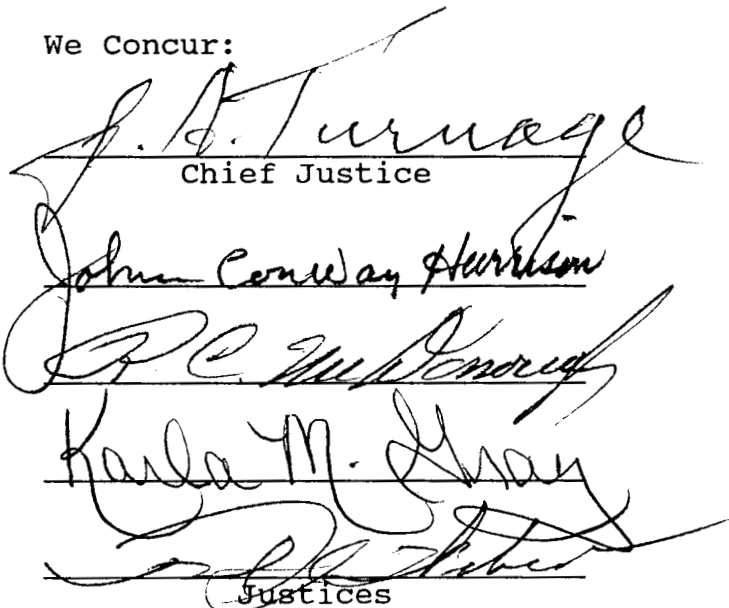 We Concur:
J. A. Turnage
Chief Justice
John Conway Harrison
R. C. McDonough
Karla M. Gray
Justices